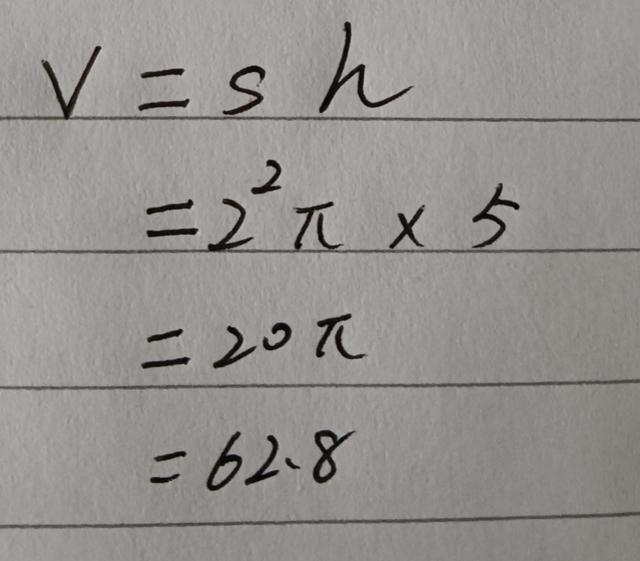 V = s h
= 2²π × 5
= 20π
= 62.8